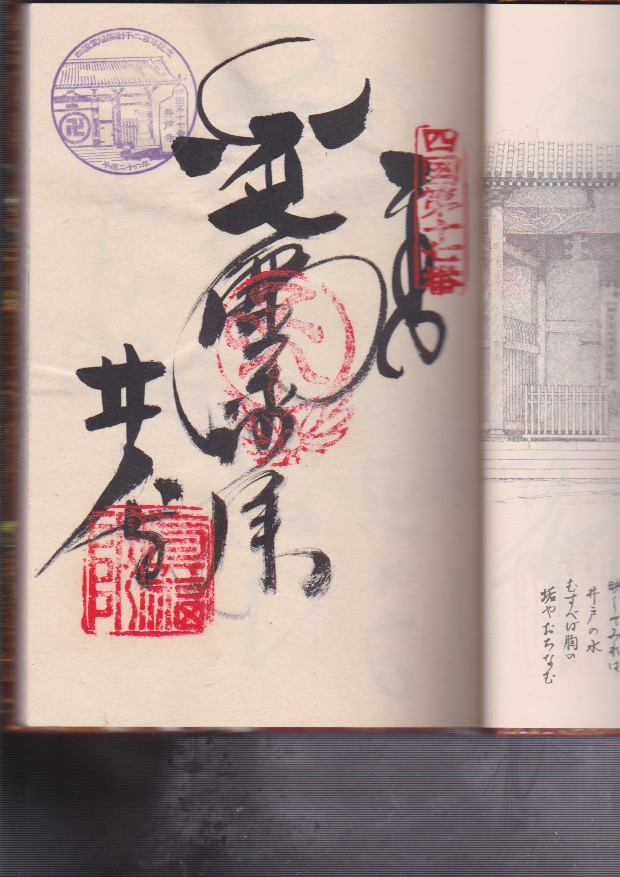 四国霊場開創千二百年記念
四国第十七番
井戸寺
平成二十六年
四国第十七番
奉納
井戸寺
映してみれば
井戸の水
むすべば胸の
垢やおちなむ